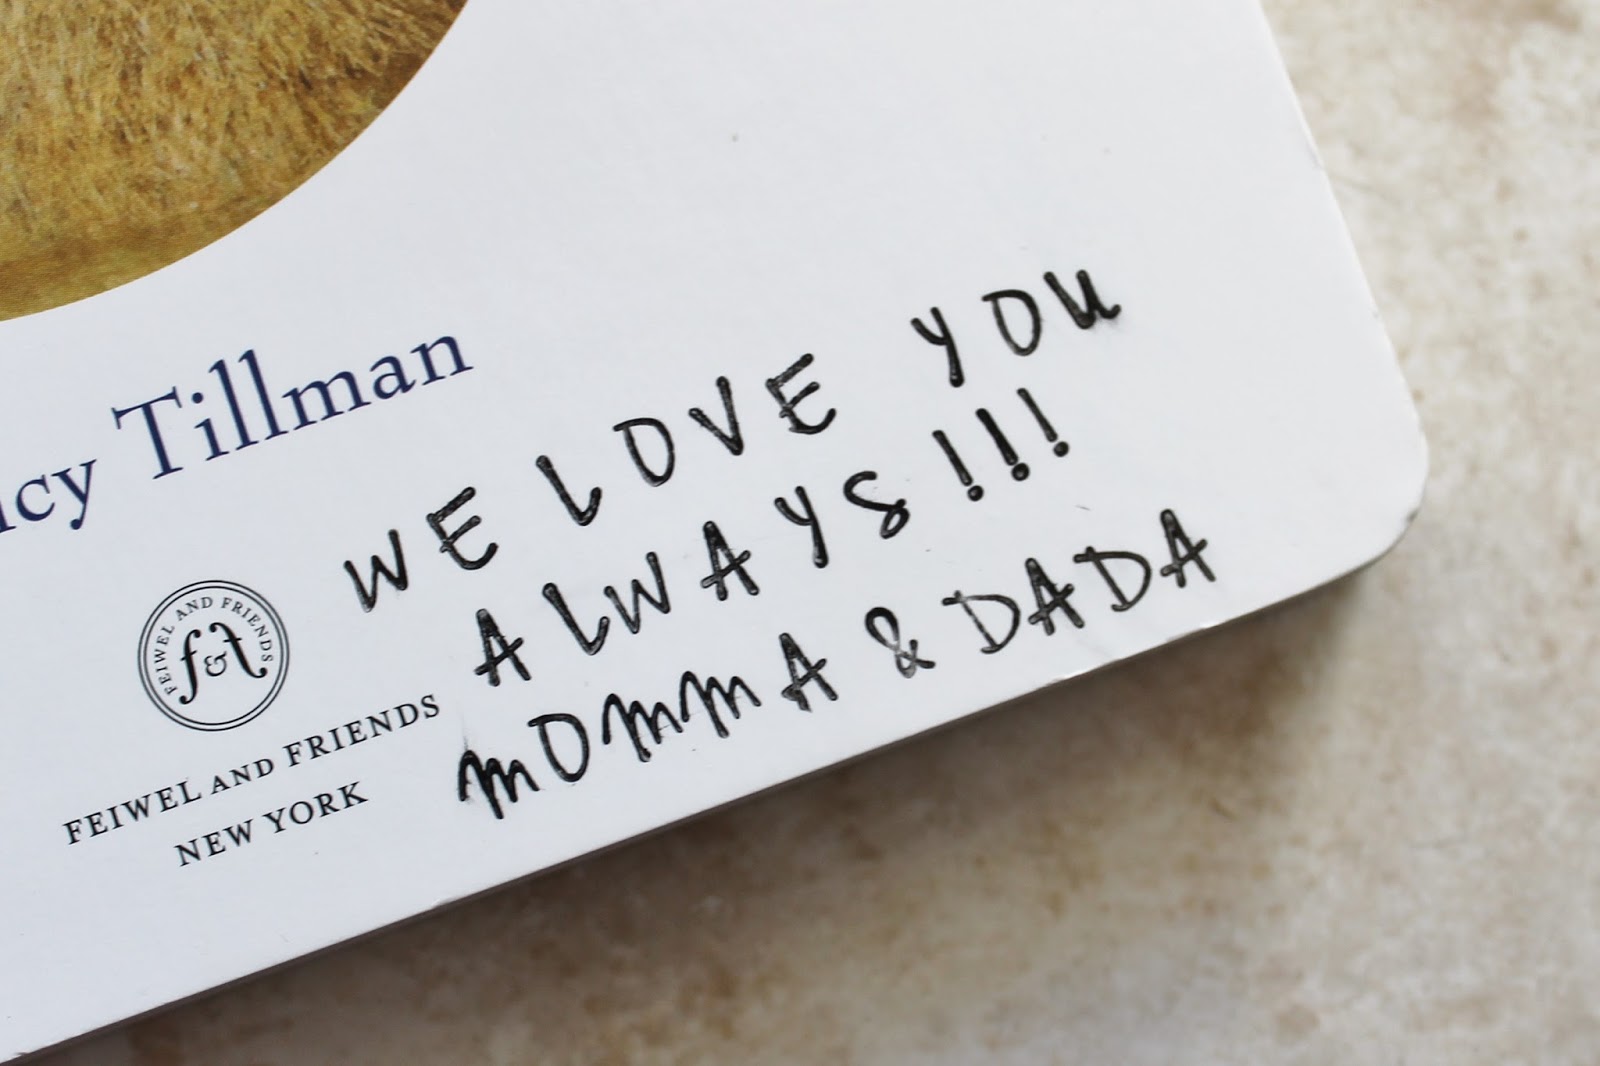 cy Tillman
WE LOVE YOU
ALWAYS!!!
MOMMA & DADA
FEIWEL AND FRIENDS
f&f
FEIWEL AND FRIENDS
NEW YORK